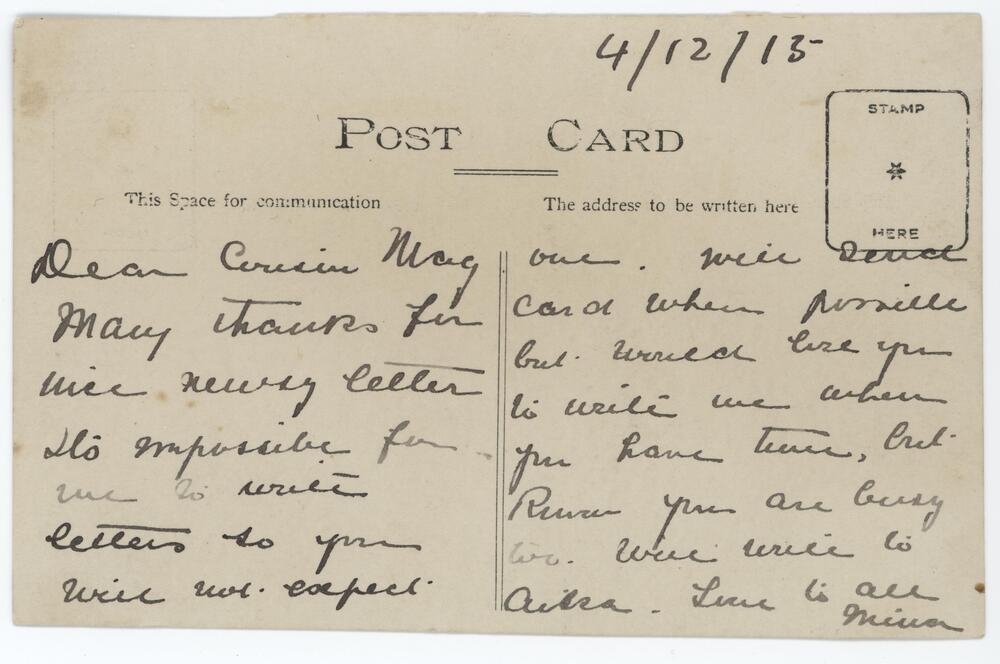 4/12/15
POST CARD
STAMP
HERE
This Space for communication
The address to be written here
Dear Cousin Mag
Many thanks for
nice newsy letter
Its impossible for
me to write
letters so you
will not expect
one. will send
card when possible
but would love you
to write me when
you have time, but
Know you are busy
too. Will write to
Love to all
Minna